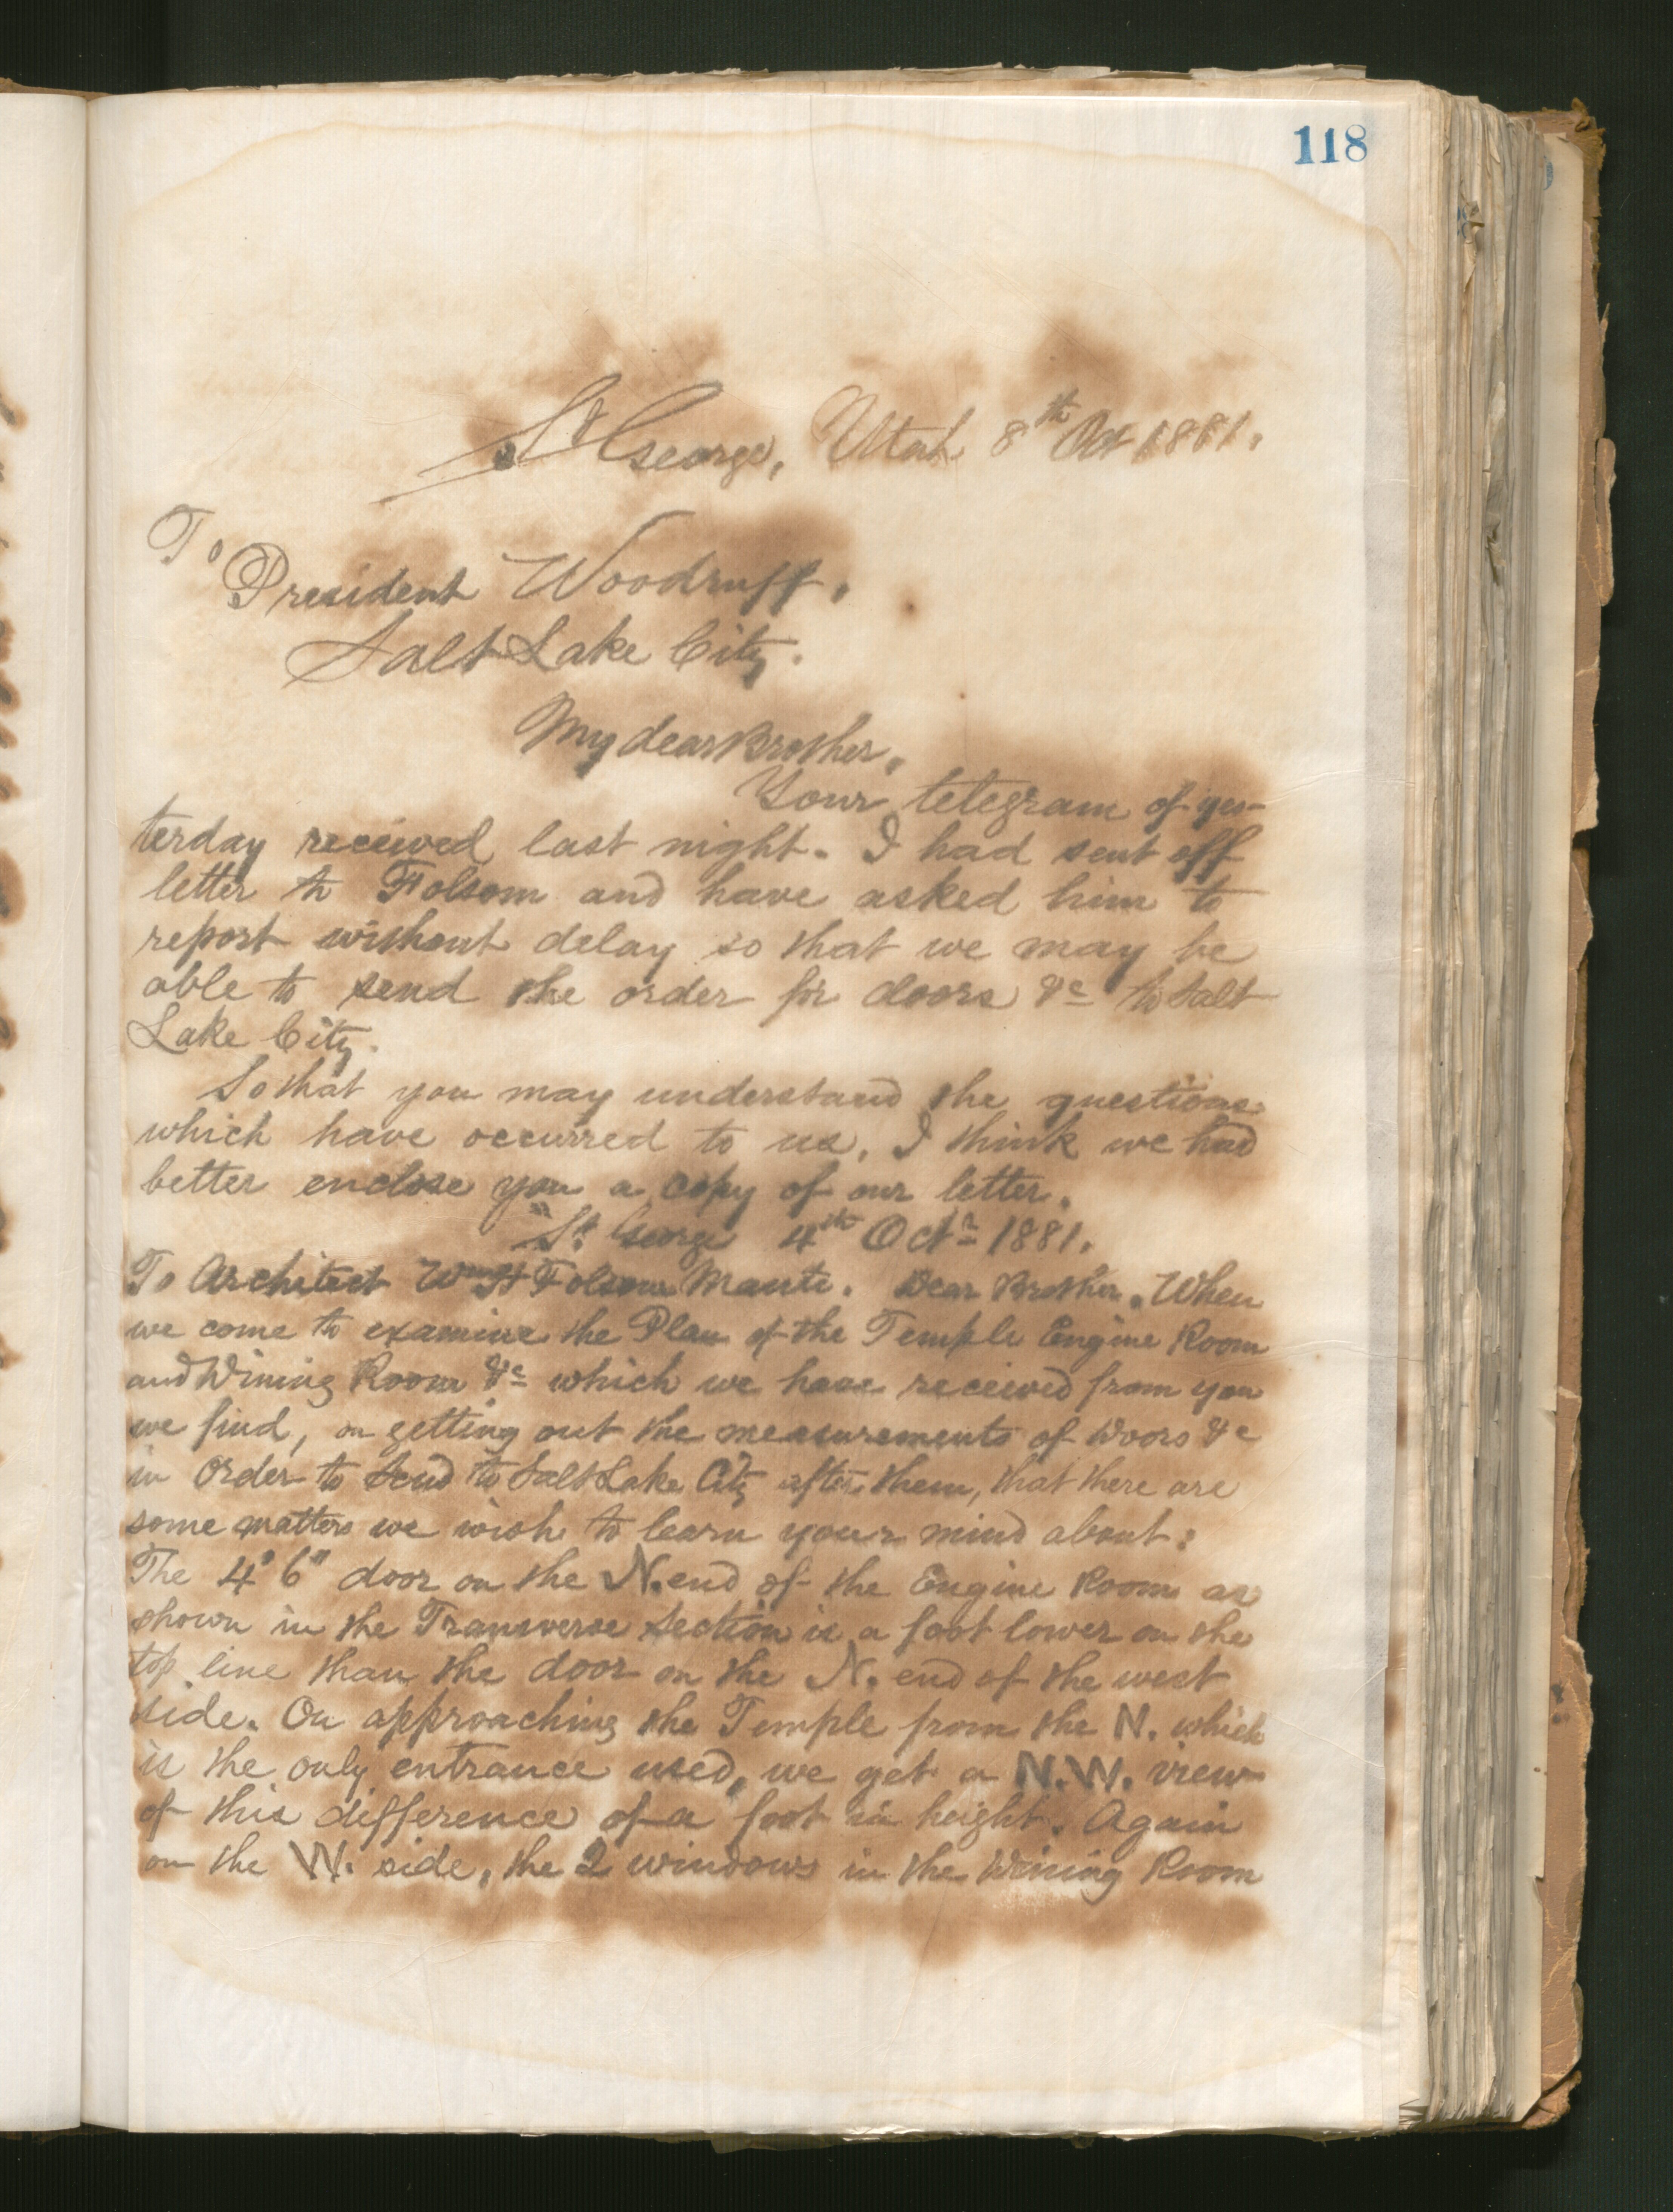 118
St George, Utah 8th Oct 1881.
To
President Woodruff.
Salt Lake City.
My dear Brother,
Your telegram of yes-
terday received last night. I had sent off
letter to Folsom and have asked him to
report without delay so that we may be
able to send the order for doors &c to Salt
Lake City.
So that you may understand the questions
which have occurred to us, I think we had
better enclose you a copy of our letter.
"St. George 4th Octr 1881.
To Architect Wm H Folsom Manti. Dear Brother. When
we come to examine the Plan of the Temple Engine Room
and Dining Room &c which we have received from you
we find, on getting out the measurements of Doors &c
in Order to Send to Salt Lake City after them, that there are
some matters we wish to learn your mind about:
The 4' 6" door on the N. end of the Engine Room as
shown in the Transverse Section is a foot lower on the
top line than the door on the N. end of the west
side. On approaching the Temple from the N. which
is the only entrance used, we get a N.W. view
of this difference of a foot in height. Again
on the W. side, the 2 windows in the Dining Room